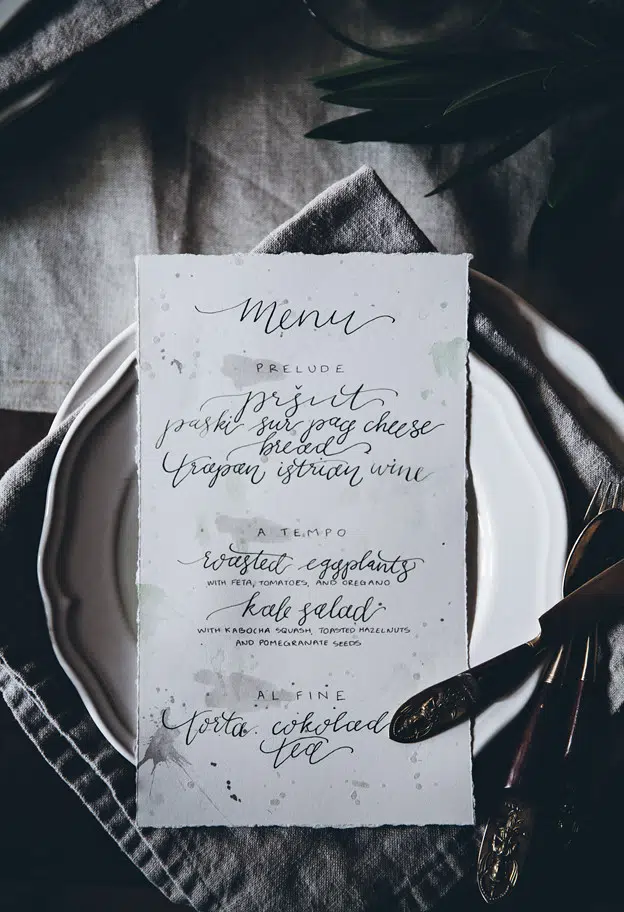 menu
PRELUDE
pršut
paški sur pag cheese
bread
trapan istrian wine
A TEMPO
roasted eggplants
WITH FETA, TOMATOES, AND OREGANO
kale salad
WITH KABOCHA SQUASH, TOASTED HAZELNUTS
AND POMEGRANATE SEEDS
AL FINE
torta cokolad
tea